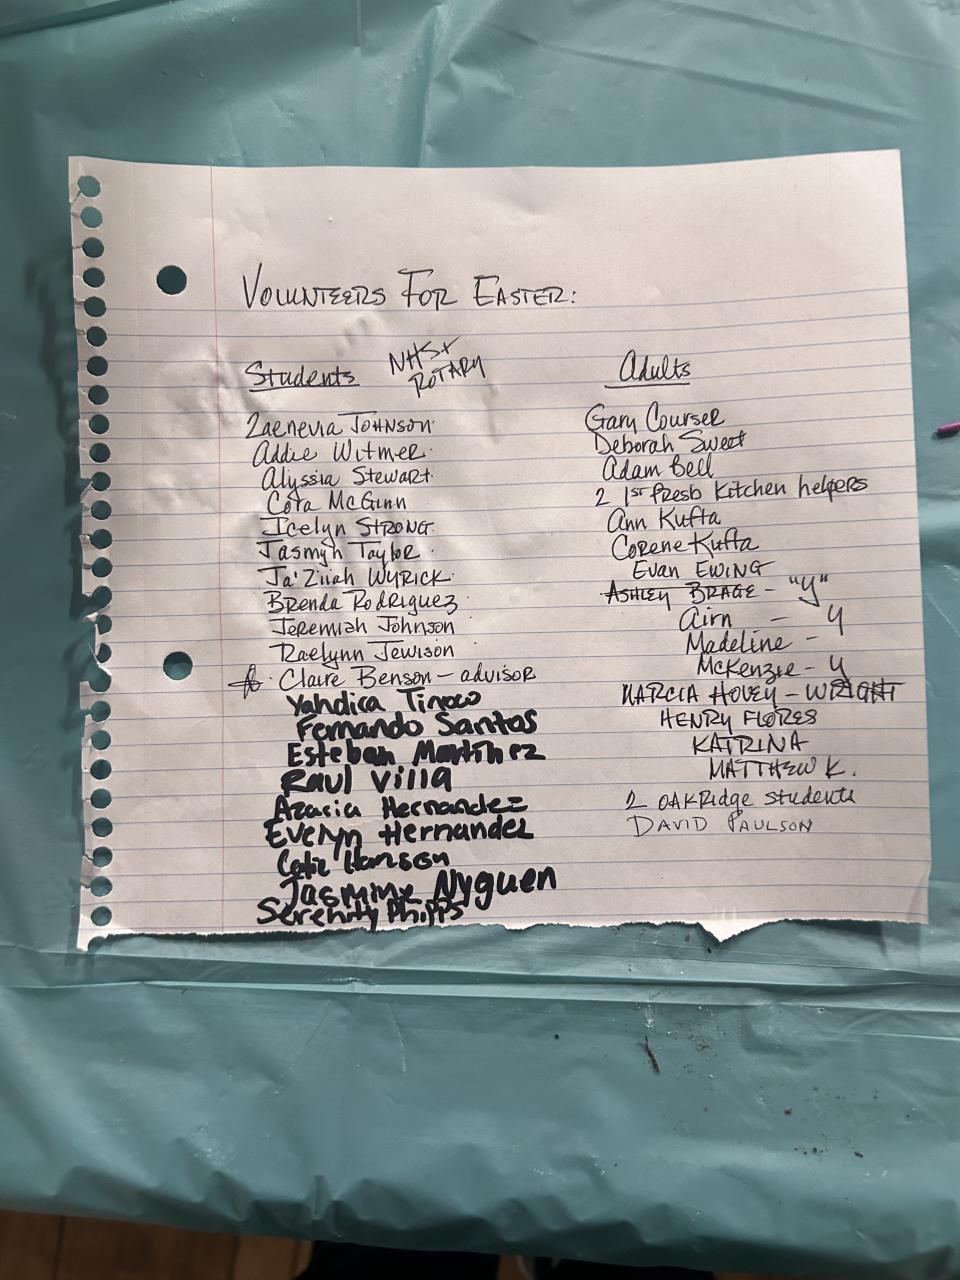 VOLUNTEERS FOR EASTER:
Students NHS+
ROTARY
Zaenevia JOHNSON
Addie Witmer
Alyssia Stewart
Cora McGinn
Icelyn STRONG
Jasmyn Taylor
Ja'Ziiah WYRICK
Brenda Rodriguez
Jeremiah Johnson
Raelynn Jewison
Claire Benson - advisor
Yahdica Tinoco
Fernando Santos
Esteban Martinez
Raul Villa
Azaria Hernandez
Evelyn Hernandez
Hanson
Jasmine Nyguen
Serenity Phipps
Adults
Gary Courser
Deborah Sweet
Adam Bell
2 1st Presb Kitchen helpers
Ann Kufta
Corene Kufta
Evan EWING
ASHLEY BRAGE - "Y"
Airn - Y
Madeline -
McKenzie - Y
MARCIA HOVEY - WRIGHT
HENRY FLORES
KATRINA
MATTHEW K.
2 OAKRidge students
DAVID PAULSON